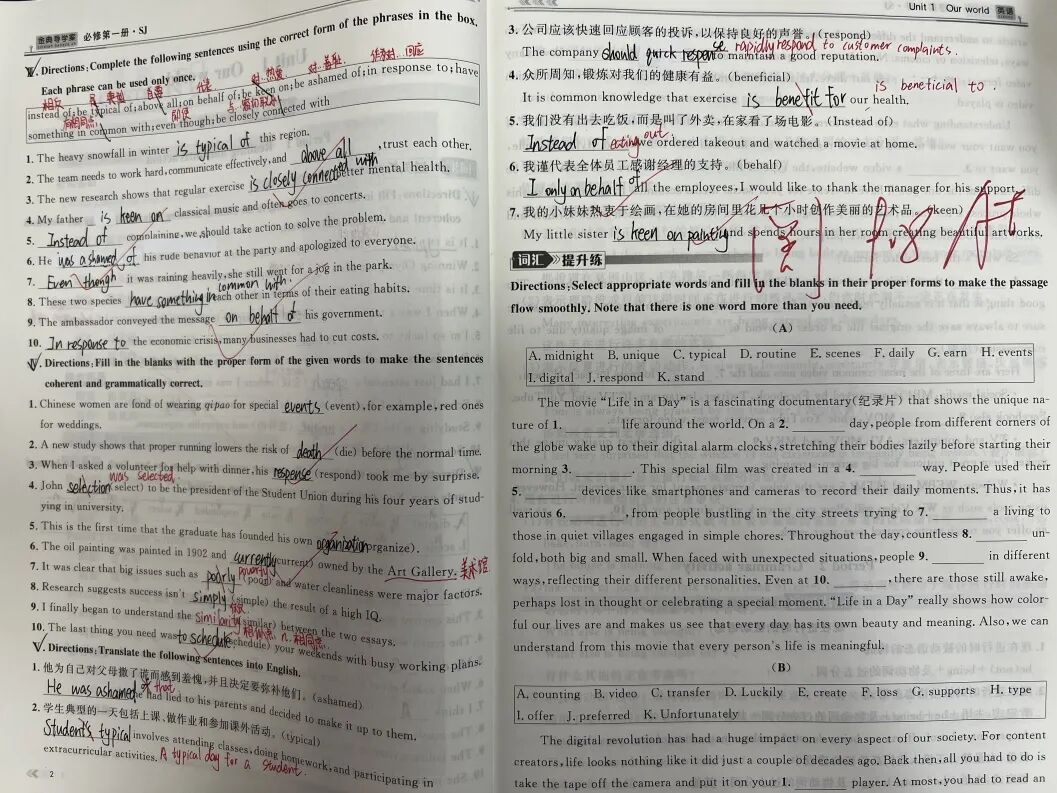 金典导学案 必修第一册·SJ
Ⅳ. Directions: Complete the following sentences using the correct form of the phrases in the box.
Each phrase can be used only once.
instead of; be typical of; above all; on behalf of; be keen on; be ashamed of; in response to; have
something in common with; even though; be closely connected with
1. The heavy snowfall in winter is typical of this region.
2. The team needs to work hard, communicate effectively, and above all, trust each other.
3. The new research shows that regular exercise is closely connected with better mental health.
4. My father is keen on classical music and often goes to concerts.
5. Instead of complaining, we should take action to solve the problem.
6. He was ashamed of his rude behavior at the party and apologized to everyone.
7. Even though it was raining heavily, she still went for a jog in the park.
8. These two species have something in common with each other in terms of their eating habits.
9. The ambassador conveyed the message on behalf of his government.
10. In response to the economic crisis, many businesses had to cut costs.
Ⅴ. Directions: Fill in the blanks with the proper form of the given words to make the sentences
coherent and grammatically correct.
1. Chinese women are fond of wearing qipao for special events (event), for example, red ones
for weddings.
2. A new study shows that proper running lowers the risk of death (die) before the normal time.
3. When I asked a volunteer for help with dinner, his response (respond) took me by surprise.
was selected
4. John selection (select) to be the president of the Student Union during his four years of stud-
ying in university.
5. This is the first time that the graduate has founded his own organization (organize).
6. The oil painting was painted in 1902 and currently (current) owned by the Art Gallery. 美术馆
poverty
7. It was clear that big issues such as poorly (poor) and water cleanliness were major factors.
8. Research suggests success isn't simply (simple) the result of a high IQ.
9. I finally began to understand the similarity (similar) between the two essays.
10. The last thing you need was to schedule (schedule) your weekends with busy working plans.
Ⅵ. Directions: Translate the following sentences into English.
1. 他为自己对父母撒了谎而感到羞愧，并且决定要弥补他们。(ashamed)
that
He was ashamed he had lied to his parents and decided to make it up to them.
2. 学生典型的一天包括上课、做作业和参加课外活动。(typical)
Student's typical involves attending classes, doing homework, and participating in
extracurricular activities. A typical day for a student
2
Unit 1 Our world 英语
3. 公司应该快速回应顾客的投诉，以保持良好的声誉。(respond)
The company should quick response rapidly respond to customer complaints. to maintain a good reputation.
4. 众所周知，锻炼对我们的健康有益。(beneficial) is beneficial to.
It is common knowledge that exercise is benefit for our health.
5. 我们没有出去吃饭，而是叫了外卖，在家看了场电影。(Instead of)
Instead of eating out, we ordered takeout and watched a movie at home.
6. 我谨代表全体员工感谢经理的支持。(behalf)
I only on behalf of all the employees, I would like to thank the manager for his support.
7. 我的小妹妹热衷于绘画，在她的房间里花几个小时创作美丽的艺术品。(keen)
My little sister is keen on painting and spends hours in her room creating beautiful art works.
词汇 提升练
Directions: Select appropriate words and fill in the blanks in their proper forms to make the passage
flow smoothly. Note that there is one word more than you need.
(A)
A. midnight B. unique C. typical D. routine E. scenes F. daily G. earn H. events
I. digital J. respond K. stand
The movie “Life in a Day” is a fascinating documentary(纪录片) that shows the unique na-
ture of 1. ________ life around the world. On a 2. ________ day, people from different corners of
the globe wake up to their digital alarm clocks, stretching their bodies lazily before starting their
morning 3. ________. This special film was created in a 4. ________ way. People used their
5. ________ devices like smartphones and cameras to record their daily moments. Thus, it has
various 6. ________, from people bustling in the city streets trying to 7. ________ a living to
those in quiet villages engaged in simple chores. Throughout the day, countless 8. ________ un-
fold, both big and small. When faced with unexpected situations, people 9. ________ in different
ways, reflecting their different personalities. Even at 10. ________, there are those still awake,
perhaps lost in thought or celebrating a special moment. “Life in a Day” really shows how color-
ful our lives are and makes us see that every day has its own beauty and meaning. Also, we can
understand from this movie that every person's life is meaningful.
(B)
A. counting B. video C. transfer D. Luckily E. create F. loss G. supports H. type
I. offer J. preferred K. Unfortunately
The digital revolution has had a huge impact on every aspect of our society. For content
creators, life looks nothing like it did just a couple of decades ago. Back then, all you had to do is
take the tape off the camera and put it on your 1. ________ player. At most, you had to read an